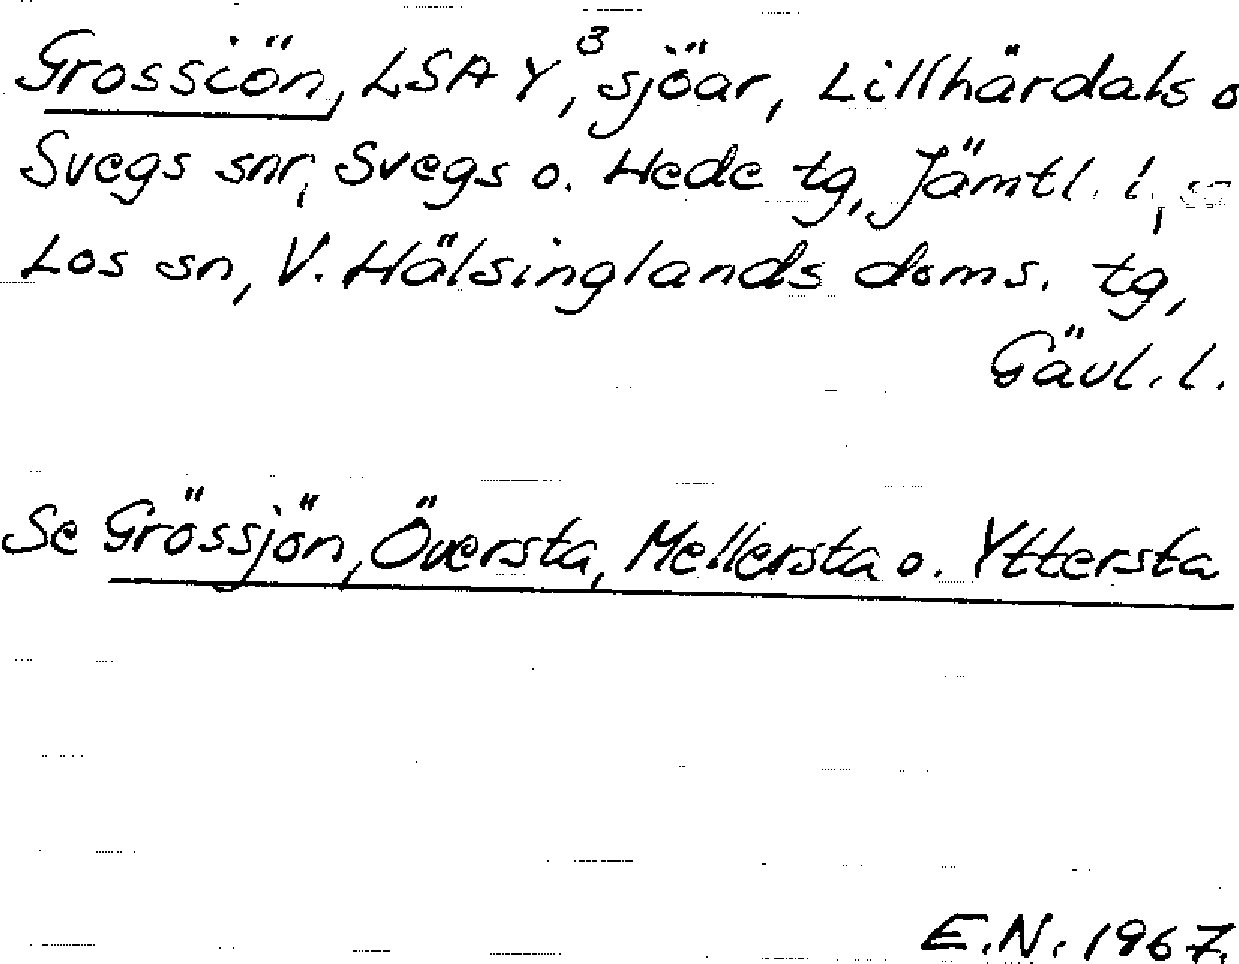 Grossiön, LSA Y, 3 sjöar, Lillhärdals o
Svegs snr, Svegs o. Hede tg, Jämtl. l,
Los sn, V. Hälsinglands doms. tg,
Gävl. l.
Se Grössjön, Översta, Mellersta o. Yttersta
E.N. 1967.